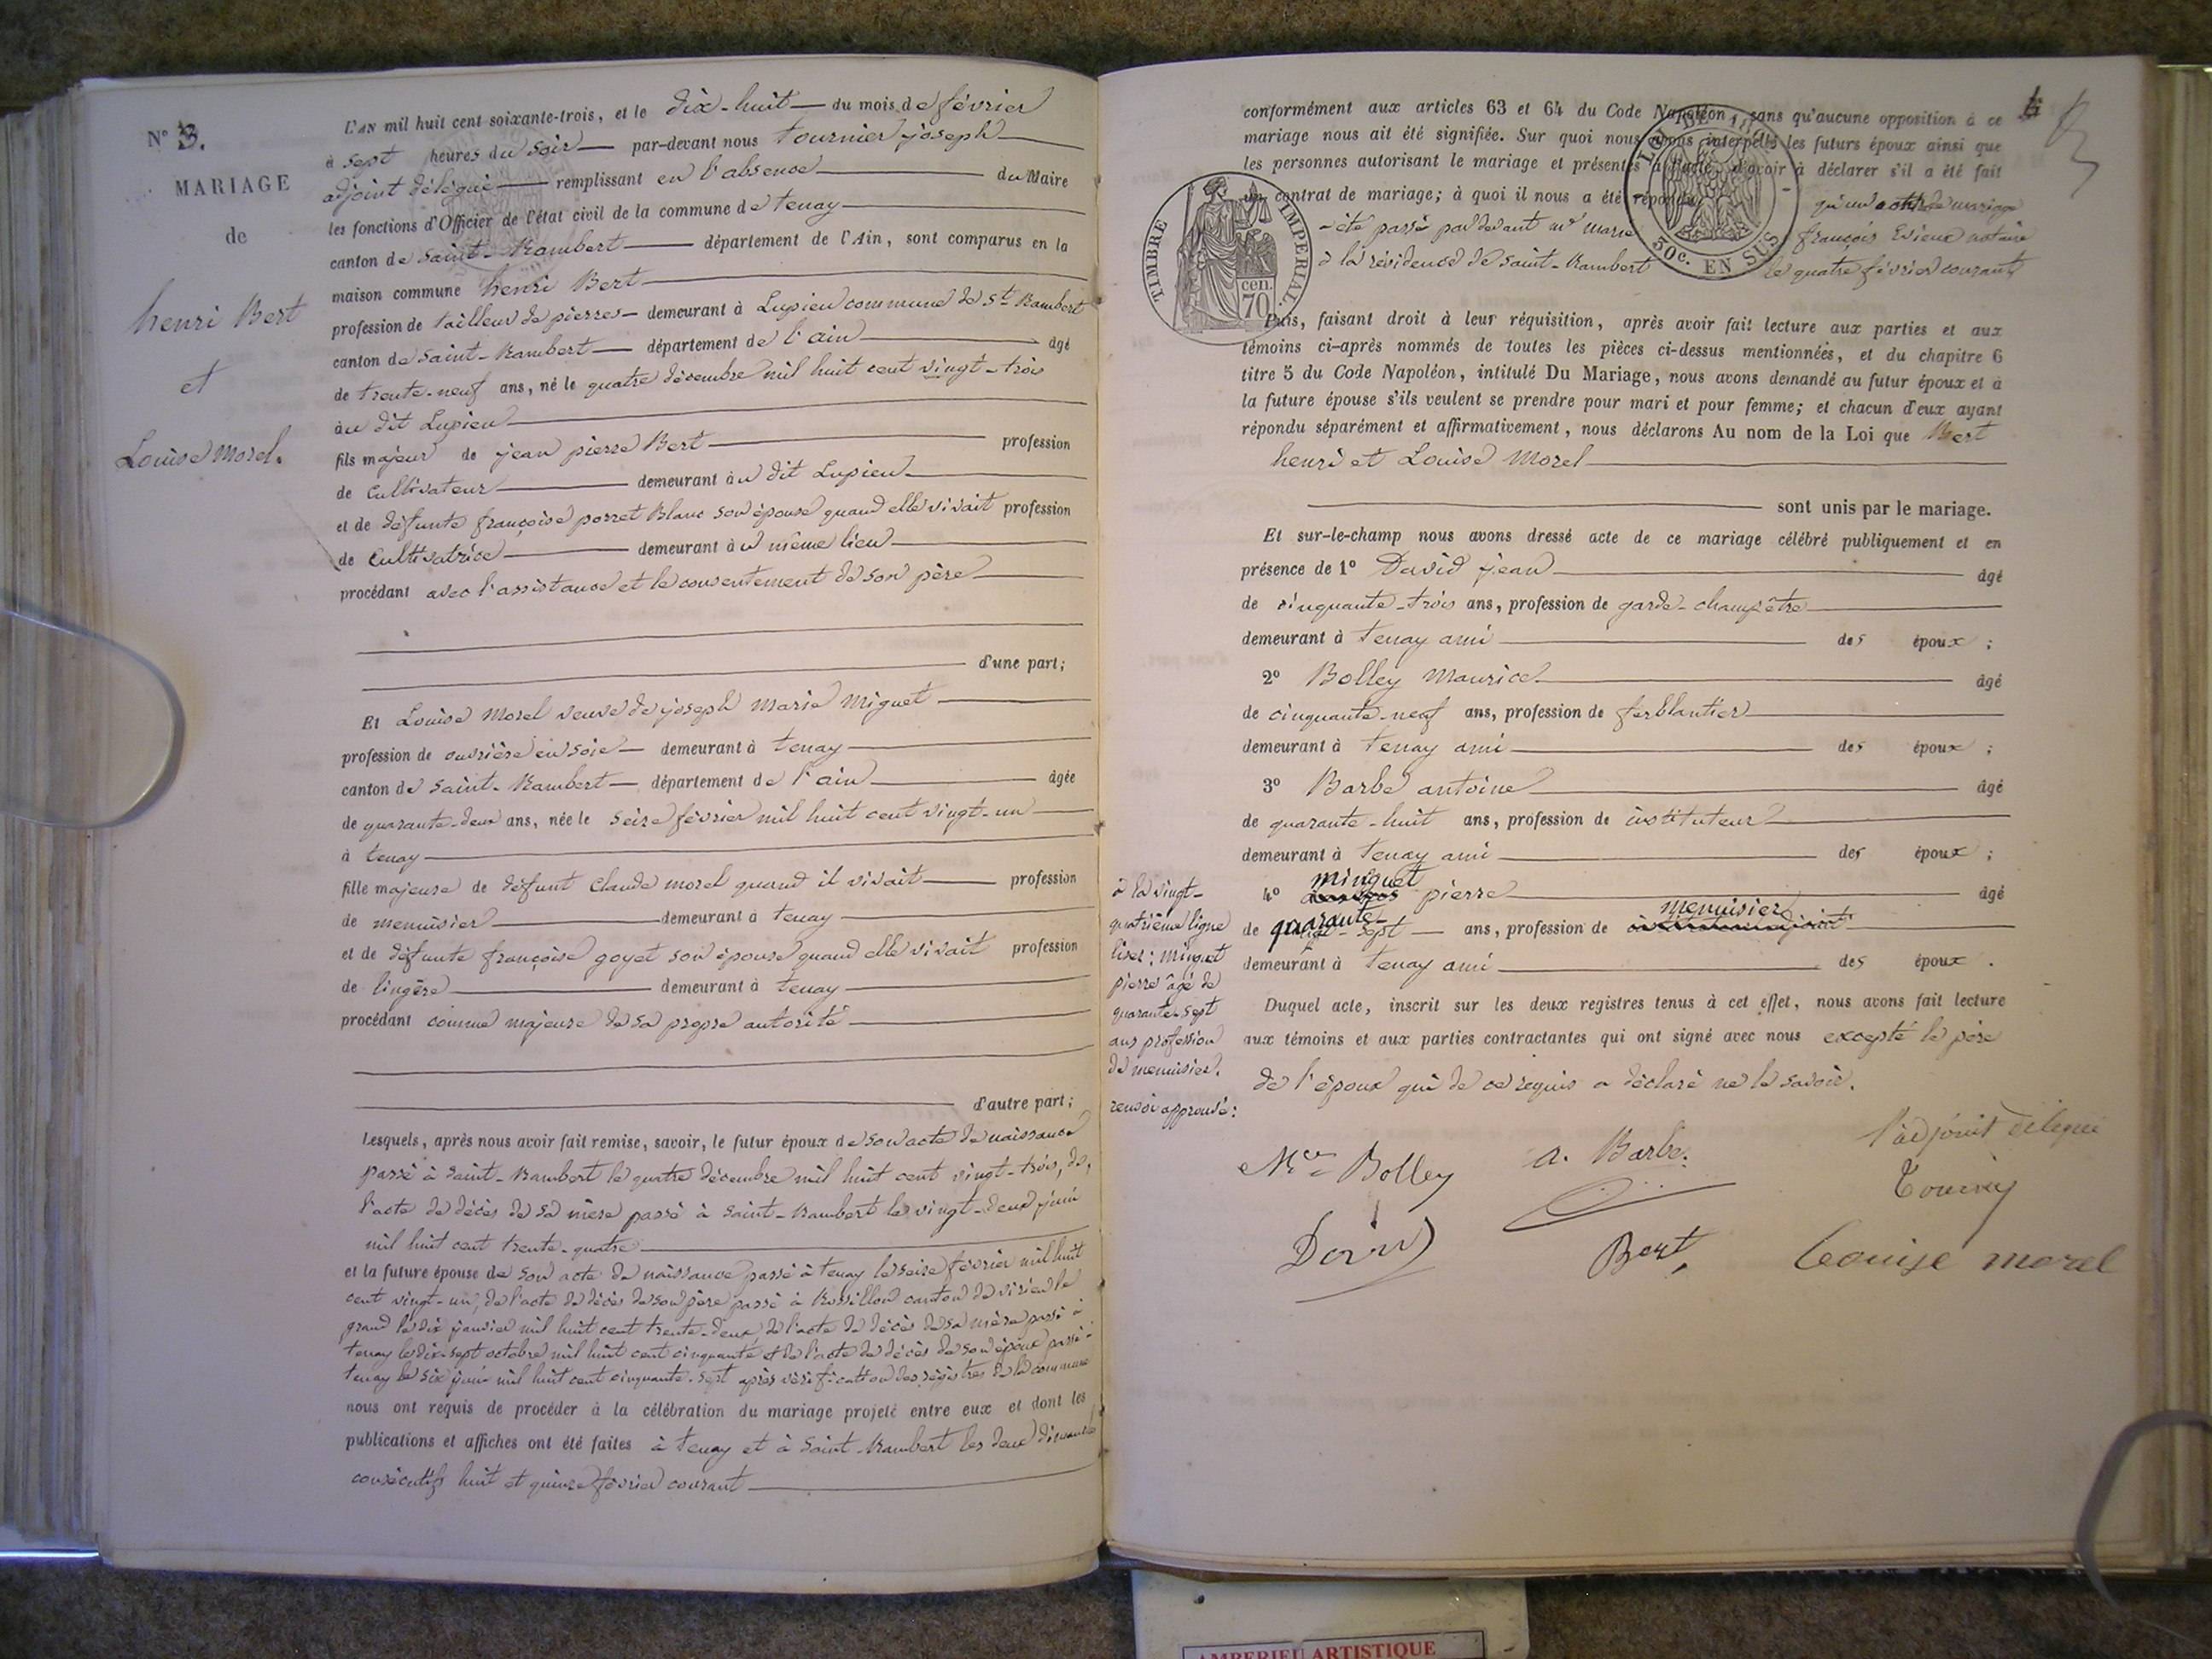 N° 3.
MARIAGE
de
henri Bert
et
Louise Morel.
L'AN mil huit cent soixante-trois, et le dix-huit du mois de février
à sept heures du soir par-devant nous tournier joseph
adjoint délégué remplissant en l'absence du Maire
les fonctions d'Officier de l'état civil de la commune de tenay
canton de saint-Rambert département de l'Ain, sont comparus en la
maison commune henri Bert
profession de tailleur de pierres demeurant à Lupieu commune de St Rambert
canton de saint-Rambert département de l'ain âgé
de trente-neuf ans, né le quatre décembre mil huit cent vingt-trois
au dit Lupieu
fils majeur de jean pierre Bert profession
de cultivateur demeurant au dit Lupieu
et de défunte françoise porret Blanc son épouse quand elle vivait profession
de cultivatrice demeurant au même lieu
procédant avec l'assistance et le consentement de son père
d'une part;
Et Louise Morel veuve de joseph marie Miguet
profession de ouvrière en soie demeurant à tenay
canton de saint-Rambert département de l'ain âgée
de quarante-deux ans, née le seize février mil huit cent vingt-un
à tenay
fille majeure de défunt Claude morel quand il vivait profession
de menuisier demeurant à tenay
et de défunte françoise goyet son épouse quand elle vivait profession
de lingère demeurant à tenay
procédant comme majeure de sa propre autorité
d'autre part;
Lesquels, après nous avoir fait remise, savoir, le futur époux de son acte de naissance
passé à saint-Rambert le quatre décembre mil huit cent vingt-trois, de
l'acte de décès de sa mère passé à saint-Rambert le vingt-deux juin
mil huit cent trente-quatre
et la future épouse de son acte de naissance passé à tenay le seize février mil huit
cent vingt-un, de l'acte de décès de son père passé à Rossillon canton de virieu le
grand le dix janvier mil huit cent trente-deux, de l'acte de décès de sa mère passé à
tenay le dix-sept octobre mil huit cent cinquante et de l'acte de décès de son époux passé à
tenay le six juin mil huit cent cinquante-sept après vérification des régistres de la commune
nous ont requis de procéder à la célébration du mariage projeté entre eux et dont les
publications et affiches ont été faites à tenay et à saint-Rambert les deux dimanches
consécutifs huit et quinze février courant
conformément aux articles 63 et 64 du Code Napoléon, sans qu'aucune opposition à ce
mariage nous ait été signifiée. Sur quoi nous avons interpellé les futurs époux ainsi que
les personnes autorisant le mariage et présentes à l'acte, d'avoir à déclarer s'il a été fait
un contrat de mariage; à quoi il nous a été répondu qu'un contrat de mariage
a été passé pardevant me marie françois notaire
à la résidence de saint-Rambert le quatre février courant
TIMBRE IMPERIAL.
cen.
70
50c. EN SUS
Puis, faisant droit à leur réquisition, après avoir fait lecture aux parties et aux
témoins ci-après nommés de toutes les pièces ci-dessus mentionnées, et du chapitre 6
titre 5 du Code Napoléon, intitulé Du Mariage, nous avons demandé au futur époux et à
la future épouse s'ils veulent se prendre pour mari et pour femme; et chacun d'eux ayant
répondu séparément et affirmativement, nous déclarons Au nom de la Loi que Bert
henri et Louise Morel
sont unis par le mariage.
Et sur-le-champ nous avons dressé acte de ce mariage célébré publiquement et en
présence de 1° David jean âgé
de cinquante-trois ans, profession de garde-champêtre
demeurant à tenay ami des époux;
2° Bolley Maurice âgé
de cinquante-neuf ans, profession de ferblantier
demeurant à tenay ami des époux;
3° Barbe antoine âgé
de quarante-huit ans, profession de instituteur
demeurant à tenay ami des époux;
4° minguet pierre âgé
de quarante-sept ans, profession de menuisier
demeurant à tenay ami des époux.
à la vingt-
quatrième ligne
lisez: minguet
pierre âgé de
quarante-sept
ans profession
de menuisier.
renvoi approuvé:
Duquel acte, inscrit sur les deux registres tenus à cet effet, nous avons fait lecture
aux témoins et aux parties contractantes qui ont signé avec nous excepté le père
de l'époux qui de ce requis a déclaré ne le savoir.
l'adjoint délégué
Mce Bolley a. Barbe.
David Bert, Louise morel
AMBERIEU ARTISTIQUE